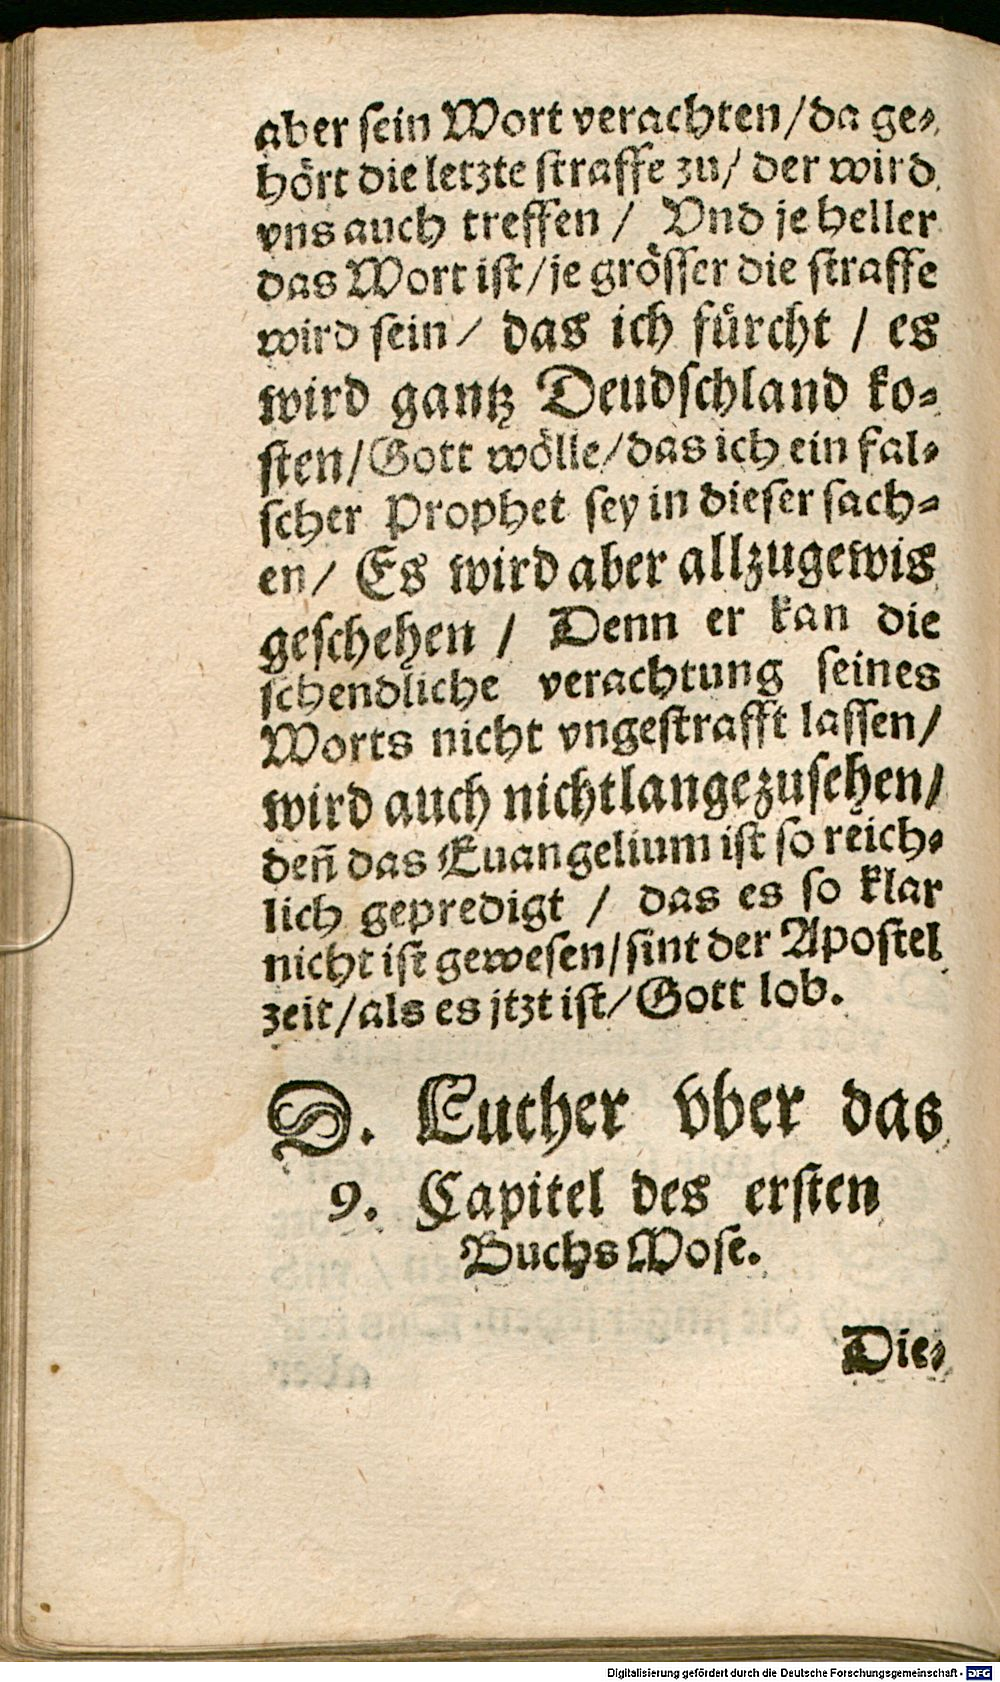 aber sein Wort verachten/da ge-
hört die letzte straffe zu/ der wird
vns auch treffen / Vnd je heller
das Wort ist/je grösser die straffe
wird sein/ das ich fürcht / es
wird gantz Deudschland ko-
sten/Gott wölle/das ich ein fal-
scher Prophet sey in dieser sach-
en/ Es wird aber allzugewis
geschehen / Denn er kan die
schendliche verachtung seines
Worts nicht vngestrafft lassen/
wird auch nicht lange zusehen/
den̄ das Euangelium ist so reich-
lich gepredigt / das es so klar
nicht ist gewesen/sint der Apostel
zeit/als es jtzt ist/Gott lob.
D. Luther vber das
9. Capitel des ersten
Buchs Mose.
Die-
Digitalisierung gefördert durch die Deutsche Forschungsgemeinschaft - DFG